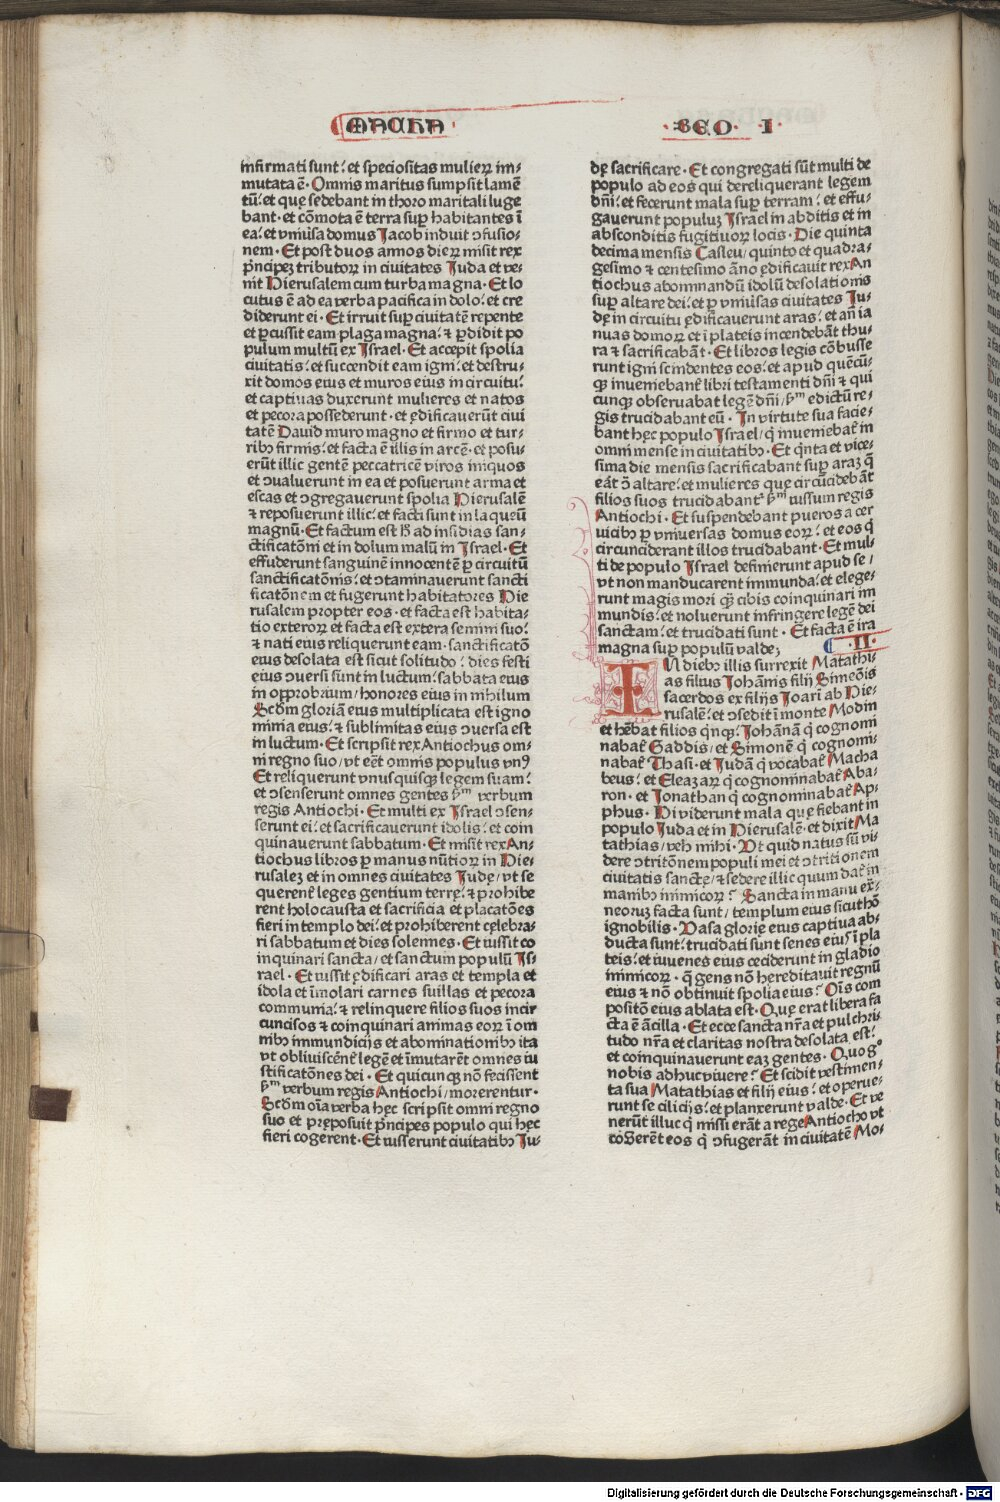 MACHA
BEO · I ·
infirmati sunt: et speciositas mulieꝝ im-
mutata ē · Omnis maritus sumpsit lamē
tū: et quę sedebant in thoro maritali luge
bant · et cōmota ē terra suꝑ habitantes ī
ea: et vniūsa domus Jacob induit ꝯfusio-
nem · Et post duos annos dieꝝ misit rex
pͥncipeꝫ tributoꝝ in ciuitates Juda et ve-
nit Hierusalem cum turba magna · Et lo
cutus ē ad ea verba pacifica in dolo: et cre
diderunt ei · Et irruit suꝑ ciuitatē repente
et ꝑcussit eam plaga magna: ⁊ ꝑdidit po
pulum multū ex Israel · Et accepit spolia
ciuitatis: et succendit eam igni: et destru-
xit domos eius et muros eius in circuitu:
et captiuas duxerunt mulieres et natos
et pecora possederunt · et ędificauerūt ciui
tatē Dauid muro magno et firmo et tur-
ribꝫ firmis: et facta ē illis in arcē · et posu-
erūt illic gentē peccatricē viros iniquos
et ꝯualuerunt in ea et posuerunt arma et
escas et ꝯgregauerunt spolia Hierusalē
⁊ reposuerunt illic: et facti sunt in laqueū
magnū · Et factum est h̄ ad insidias san-
ctificatōni et in dolum malū in Israel · Et
effuderunt sanguinē innocentē ꝑ circuitū
sanctificatōnis: et ꝯtaminauerunt sancti
ficatōnem et fugerunt habitatores Hie
rusalem propter eos · et facta est habita-
tio exteroꝝ et facta est extera semini suo:
⁊ nati eius reliquerunt eam · sanctificatō
eius desolata est sicut solitudo: dies festi
eius ꝯuersi sunt in luctum: sabbata eius
in opprobrium / honores eius in nihilum
Scd̄m gloriā eius multiplicata est igno
minia eius: ⁊ sublimitas eius ꝯuersa est
in luctum · Et scripsit rex Antiochus om-
ni regno suo / vt eēt omnis populus vnꝰ
Et reliquerunt vnusquisqꝫ legem suam:
et ꝯsenserunt omnes gentes ẜm verbum
regis Antiochi · Et multi ex Israel ꝯsen-
serunt ei: et sacrificauerunt idolis: et coin
quinauerunt sabbatum · Et misit rex An-
tiochus libros ꝑ manus nūtioꝝ in Hie-
rusaleꝫ et in omnes ciuitates Judę / vt se
querent̄ leges gentium terrę: ⁊ prohibe
rent holocausta et sacrificia et placatōes
fieri in templo dei: et prohiberent cęlebra-
ri sabbatum et dies solennes · Et iussit co
inquinari sancta / et sanctum populū Is-
rael · Et iussit ędificari aras et templa et
idola et īmolari carnes suillas et pecora
communia: ⁊ relinquere filios suos incir
cuncisos ⁊ coinquinari animas eoꝝ ī om
nibꝫ immundicijs et abominationibꝫ ita
vt obliuiscēnt̄ legē et īmutarēt omnes iu
stificatōnes dei · Et quicunqꝫ non fecissent
ẜm verbum regis Antiochi / morerentur ·
Scd̄m oīa verba hęc scripsit omni regno
suo et pręposuit pͥncipes populo qui hęc
fieri cogerent · Et iusserunt ciuitatibꝫ Ju-
dę sacrificare · Et congregati sūt multi de
populo ad eos qui dereliquerant legem
dn̄i: et fecerunt mala suꝑ terram: et effu-
gauerunt populuꝫ Israel in abditis et in
absconditis fugitiuoꝝ locis · Die quinta
decima mensis Casleu / quinto et quadra-
gesimo ⁊ centesimo āno ędificauit rex An
tiochus abominandū idolū desolationis
suꝑ altare dei: et ꝑ vniūsas ciuitates Ju-
dę in circuitu ędificauerunt aras: et an̄ ia
nuas domoꝝ et ī plateis incendebāt thu-
ra ⁊ sacrificabāt · Et libros legis cōbusse
runt igni scindentes eos: et apud quēcū-
qꝫ inueniebant̄ libri testamenti dn̄i ⁊ qui
cunqꝫ obseruabat legē dn̄i / ẜm edictū re-
gis trucidabant eū · In virtute sua facie-
bant hęc populo Israel / q̄ inueniebat̄ in
omni mense in ciuitatibꝫ · Et qͥnta et vice-
sima die mensis sacrificabant suꝑ araꝫ q̄
eāt ꝯ̄ altare: et mulieres quę circūcidebāt
filios suos trucidabant̄ ẜm iussum regis
Antiochi · Et suspendebant pueros a cer
uicibꝫ ꝑ vniuersas domus eoꝝ: et eos qͥ
circunciderant illos trucidabant · Et mul-
ti de populo Israel definierunt apud se /
vt non manducarent immunda: et elege-
runt magis mori qꝫ̄ cibis coinquinari im
mundis: et noluerunt infringere legē dei
sanctam: et trucidati sunt · Et facta ē ira
magna suꝑ populū valde;
· II ·
IN diebꝫ illis surrexit Matathi-
as filius Johānis filij Simeōis
sacerdos ex filijs Joarī ab Hie-
rusalē: et ꝯsedit ī monte Modin
et hēbat filios qͥnqꝫ: Johānā qͥ cognomi
nabat̄ Gaddis / et Simonē qͥ cognomi-
nabat̄ Thasi · et Judā qͥ vocabat̄ Macha
beus: et Eleazaꝝ qͥ cognominabat̄ Aba-
ron · et Jonathan qͥ cognominabat̄ Ap-
phus · Hi viderunt mala quę fiebant in
populo Juda et in Hierusalē · et dixit Ma
tathias / veh mihi · Vt quid natus sū vi-
dere ꝯtritōnem populi mei et ꝯtritionem
ciuitatis sanctę / ⁊ sedere illic quum dat̄ in
manibꝫ inimicoꝝ? Sancta in manu ex-
neoruꝫ facta sunt / templum eius sicut hō
ignobilis · Vasa glorię eius captiua ab-
ducta sunt: trucidati sunt senes eiuˢ ī pla
teis: et iuuenes eius ceciderunt in gladio
inimicoꝝ · q̄ gens nō hęreditauit regnū
eius ⁊ nō obtinuit spolia eius? Oīs com
positō eius ablata est · Quę erat libera fa
cta ē ācilla · Et ecce sancta nr̄a et pulchri-
tudo nr̄a et claritas nostra desolata est:
et coinquinauerunt eaꝫ gentes · Quo gͦ
nobis adhuc viuere? Et scidit vestimen-
ta sua Matathias et filij eius: et operue-
runt se cilicijs: et planxerunt valde · Et ve
nerūt illuc qͥ missi erāt a rege Antiocho vt
cōgerēt eos qͥ ꝯfugerāt in ciuitatē Mo-
Digitalisierung gefördert durch die Deutsche Forschungsgemeinschaft - DFG